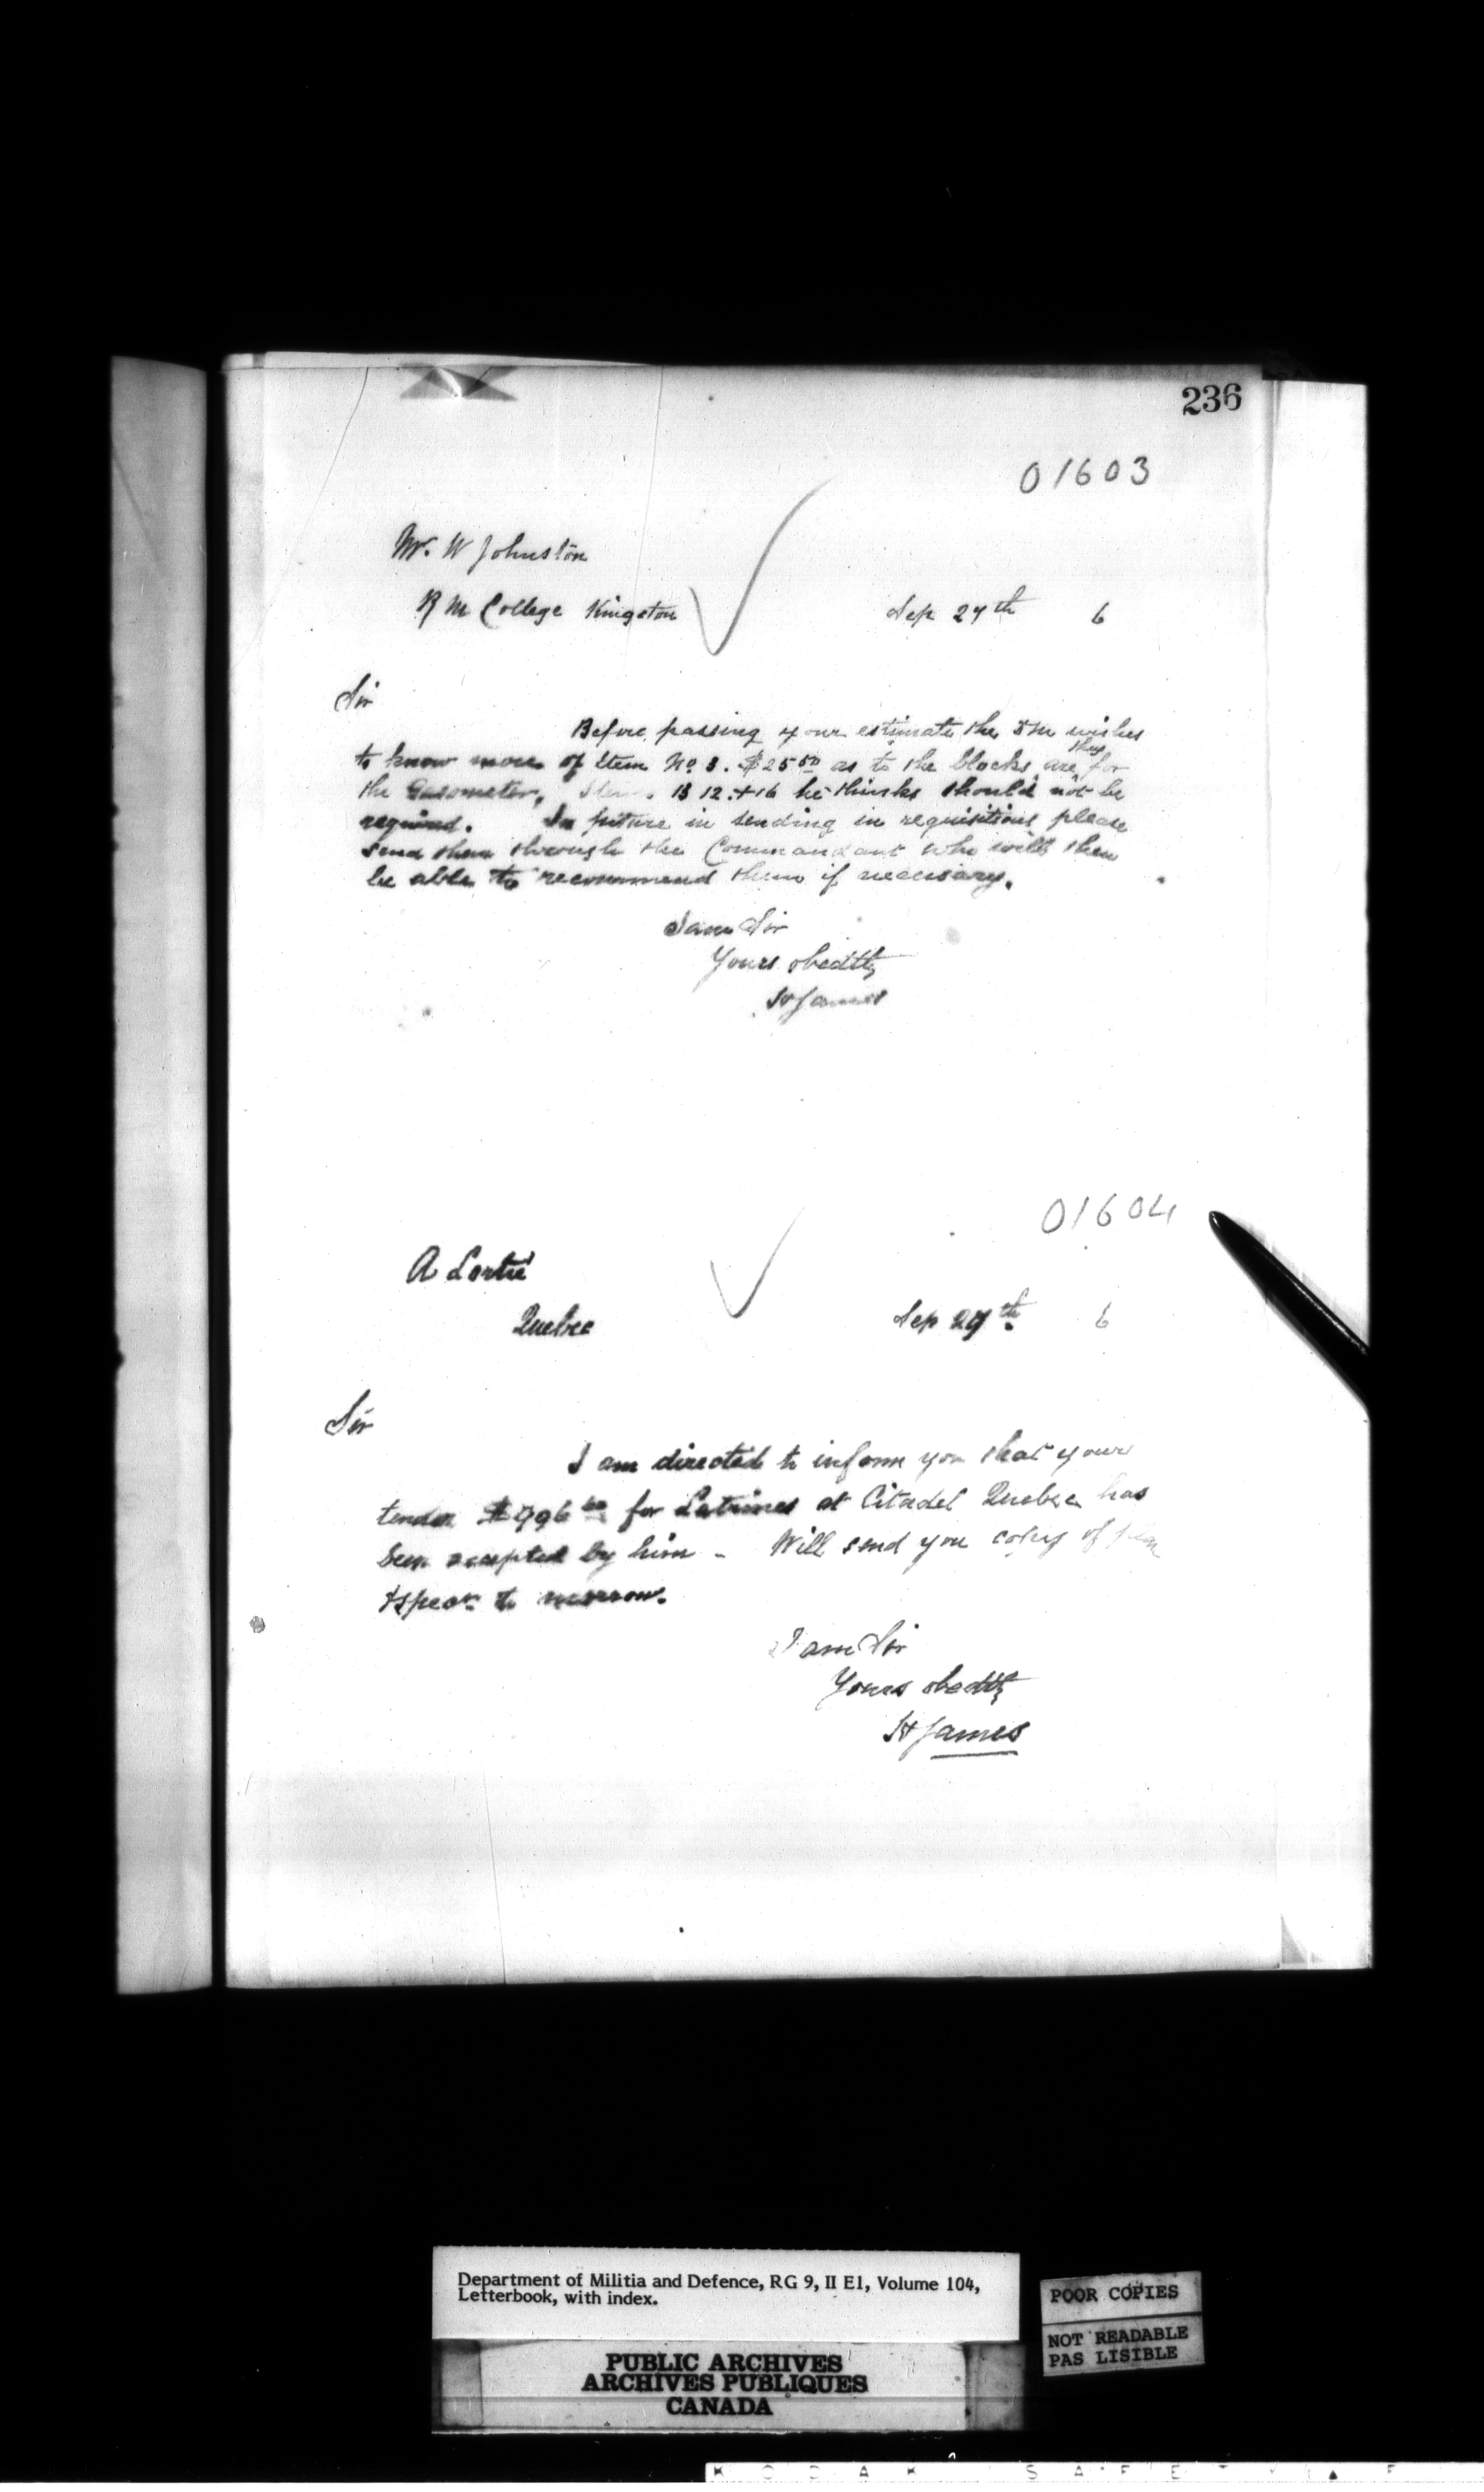 236
01603
Mr. W Johnston
R M College Kingston
Sep 27th 6
Sir
Before passing your estimate the DM wishes
they
to know more of Item No. 3. $25.50 as to the blocks are for
the Gasometer, Items 12 & 16 he thinks should not be
required. In future in sending in requisitions please
send them through the Commandant who will then
be able to recommend them if necessary.
I am Sir
Yours obedtly
H James
01604
A Lortie
Quebec
Sep 27th. 6
Sir
I am directed to inform you that your
tender for Latrines at Citadel Quebec has
been accepted by him - Will send you copy of plan
& specn to morrow.
I am Sir
Yours obedtly
H James
Department of Militia and Defence, RG 9, II E1, Volume 104,
Letterbook, with index.
POOR COPIES
NOT READABLE
PAS LISIBLE
PUBLIC ARCHIVES
ARCHIVES PUBLIQUES
CANADA
KODAK SAFETY F